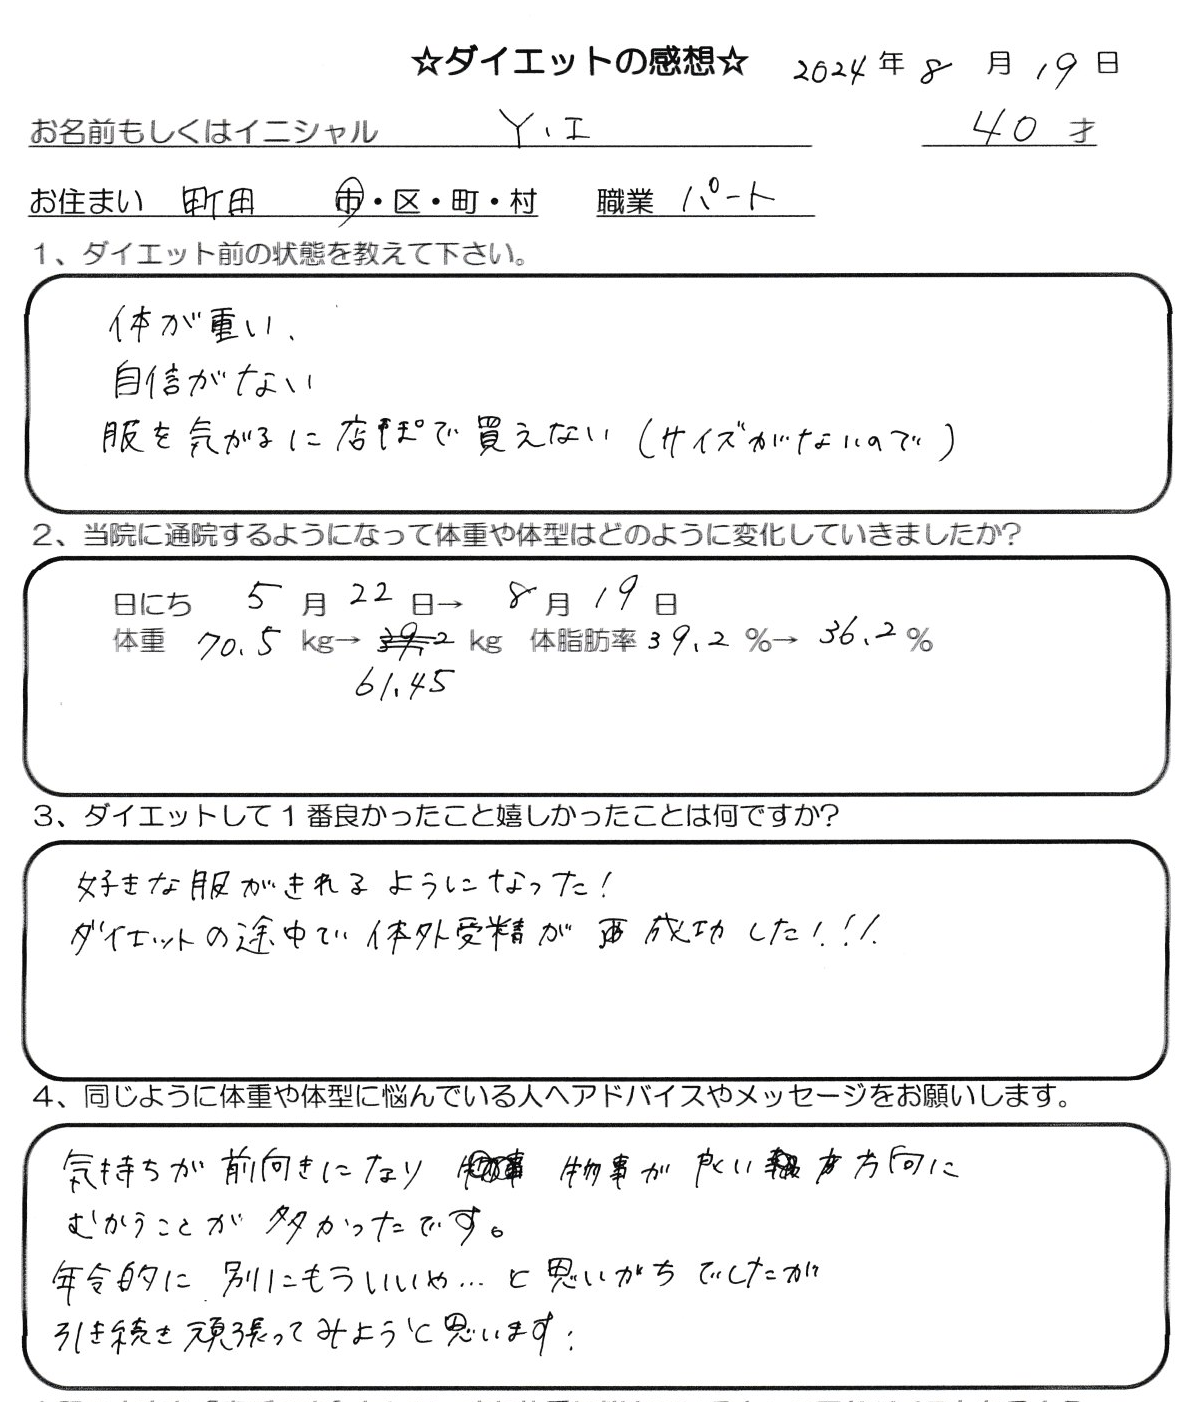 ☆ダイエットの感想☆ 2024年8月19日
お名前もしくはイニシャル Y.エ 40才
お住まい 町田 市・区・町・村 職業 パート
1、ダイエット前の状態を教えて下さい。
体が重い、
自信がない
服を気がるに店ぽで買えない(サイズがないので)
2、当院に通院するようになって体重や体型はどのように変化していきましたか?
日にち 5月22日→ 8月19日
体重 70.5 kg→ 39.2 kg 体脂肪率 39.2 %→ 36.2 %
61.45
3、ダイエットして1番良かったこと嬉しかったことは何ですか?
好きな服がきれるようになった!
ダイエットの途中で体外受精が 成功した!!!
4、同じように体重や体型に悩んでいる人へアドバイスやメッセージをお願いします。
気持ちが前向きになり 物事が良い方向に
むかうことが多かったです。
年令的に別にもういいや…と思いがちでしたが
引き続き頑張ってみようと思います!